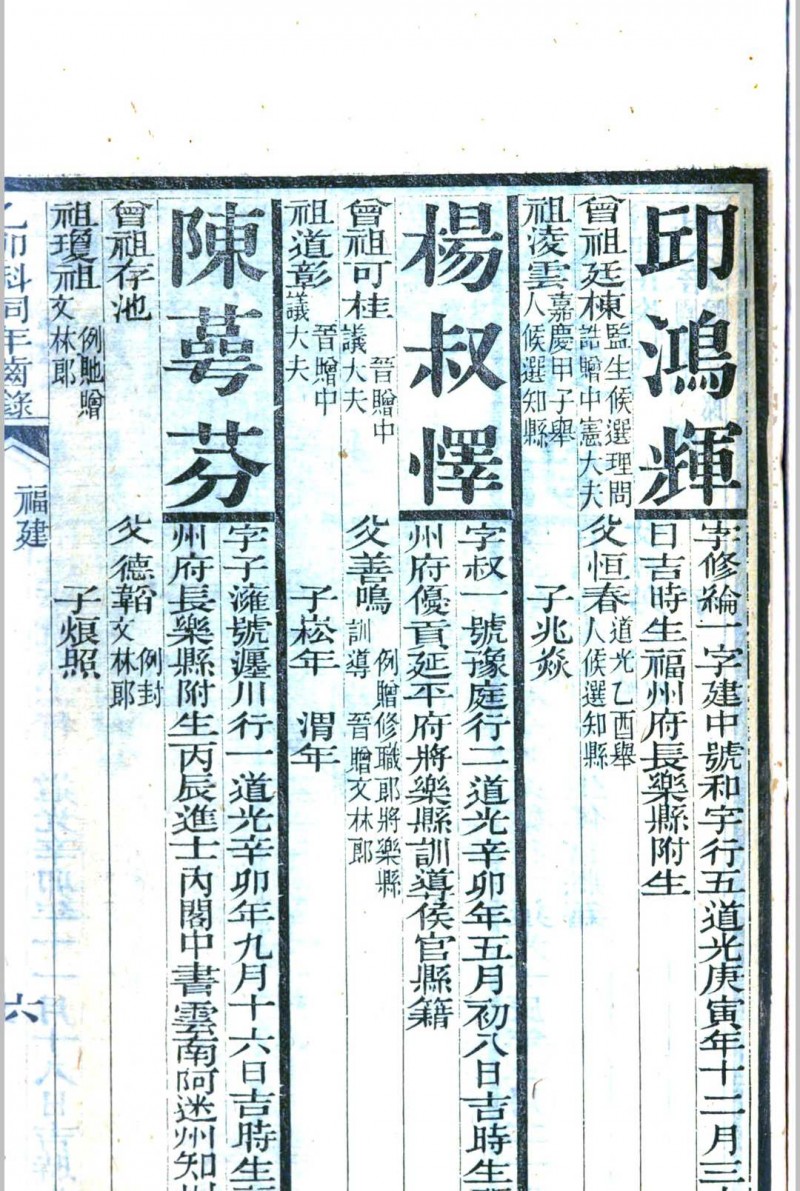 邱鴻輝
字修綸一字建中號和宇行五道光庚寅年十二月三
日吉時生福州府長樂縣附生
曾祖廷棟監生候選理問
誥贈中憲大夫
父恒春道光乙酉舉
人候選知縣
祖淩雲嘉慶甲子舉
人候選知縣
子兆焱
楊叔懌
字叔一號豫庭行二道光辛卯年五月初八日吉時生
州府優貢延平府將樂縣訓導侯官縣籍
曾祖可桂晉贈中
議大夫
父善鳴例贈修職郎將樂縣
訓導 晉贈文林郎
祖道彰晉贈中
議大夫
子崧年 渭年
陳蕚芬
字子濰號行一道光辛卯年九月十六日吉時生
州府長樂縣附生丙辰進士內閣中書雲南阿迷州知
曾祖存池
父德韜例封
文林郎
祖瓊祖例貤贈
文林郎
子煨照
乙卯科同年齒錄
福建
六